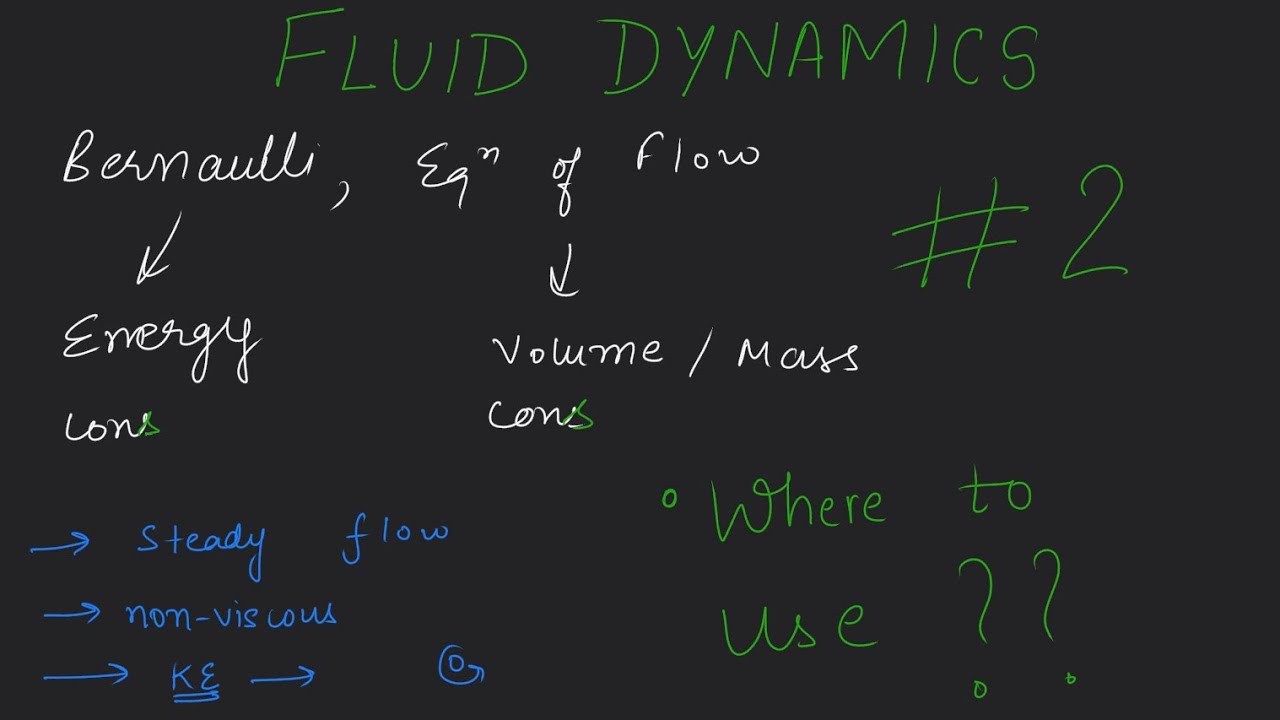 FLUID DYNAMICS
Bernaulli, Eqⁿ of flow
#2
Energy
cons
Volume / Mass
cons
→ steady flow
→ non-viscous
→ KE →
Where to
use ??